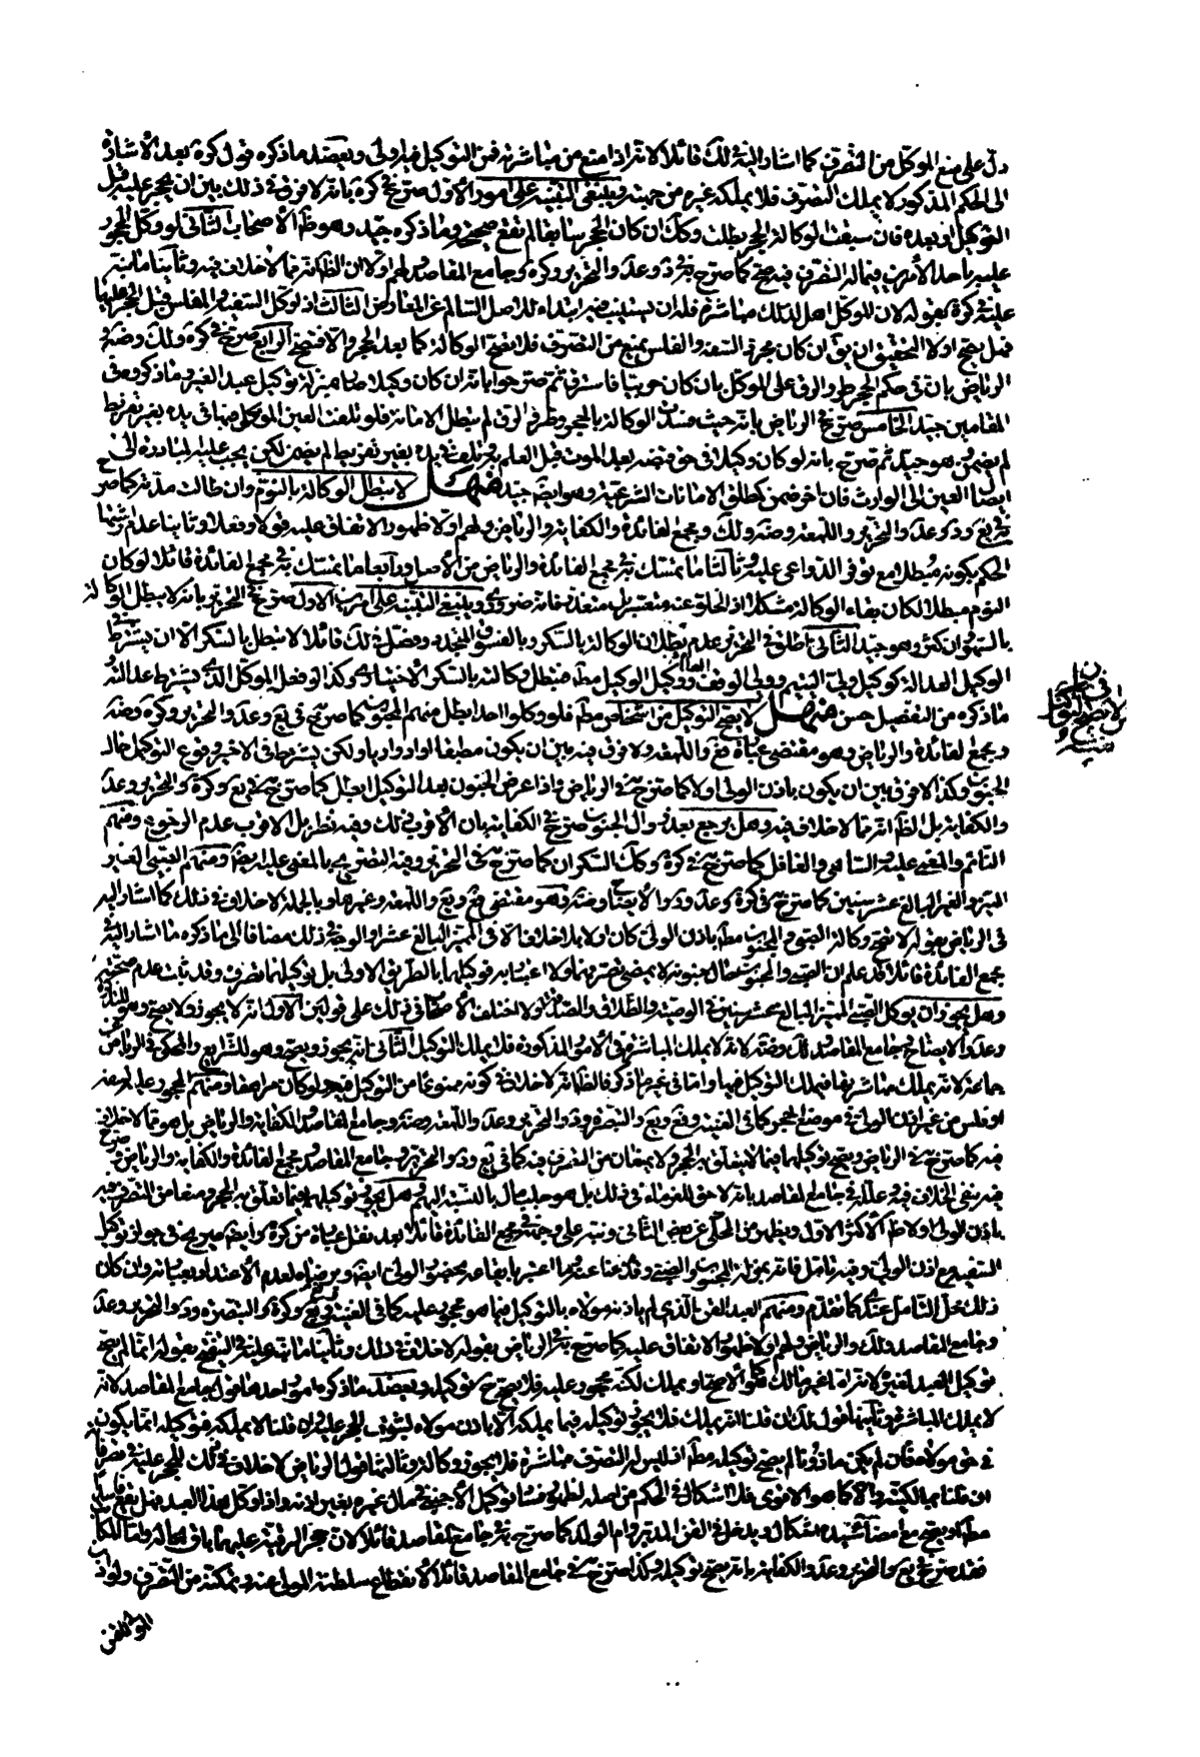 دل على منع الموكل من التصرف كما اشار اليه في لك قائلا لانه اذا منع من مباشرته فمن التوكيل فيه اولى ويعضد ما ذكره قول كره بعد الاشارة
الى الحكم المذكور لا يملك التصرف فلا يملكه غيره من جهته وينبغي التنبيه على امور الاول صرح في كره بانه لا فرق في ذلك بين ان يحجر عليه قبل
التوكيل او بعده فان سبقت الوكالة الحجر بطلت وكك ان كان الحجر سابقا لم تقع صحيحة وما ذكره جيد وهو ظ الاصحاب الثاني لو وكل المحجور
عليه باحد الامرين فيما له التصرف فيه صح كما صرح به في د وعد والتحرير وكره وجامع المقاصد ولهم اولا ان الظ انه مما لا خلاف فيه وثانيا ما نبه
عليه في كره بقوله لان للموكل اهل لذلك مباشرة فله ان يستنيب فيه ابتداء للاصل السالم عن المعارض الثالث اذا وكل السفيه او المفلس قبل الحجر عليهما
فهل يصح اولا التحقيق ان يق ان كان مجرد السفه والفلس يمنع من التصرف فلا يصح الوكالة كما بعد الحجر والا فتصح الرابع صرح في كره ولك وضه و
الرياض بان في حكم الحجر طرو الرق على الموكل بان كان حربيا فاسترق ثم صرحوا بانه ان كان وكيلا صار بمنزلة توكيل عبد الغير وما ذكروه في
المقامين جيد الخامس صرح في الرياض بانه حيث فسدت الوكالة بالحجر وطرو الرق لم تبطل الامانة فلو تلفت العين الموكل فيها في يده بغير تفريط
لم يضمن وهو جيد ثم صرح بانه لو كان وكيلا في حق فقبضه بعد الموت قبل العلم به وتلف في يده بغير تفريط لم يضمن لكن يجب عليه المبادرة الى
ايصال العين الى الوارث فان اخر ضمن كمطلق الامانات الشرعية وهو ايضا جيد منهل لا تبطل الوكالة بالنوم وان طالت مدته كما صرح
في يع ود وعد والتحرير واللمعه وضه ولك ومجمع الفائدة والكفاية والرياض ولهم اولا ظهور الاتفاق عليه قولا وفعلا وثانيا عدم اشتهار
الحكم بكونه مبطلا مع توفر الدواعي عليه وثالثا ما تمسك به في مجمع الفائدة والرياض من الاصل ورابعا ما تمسك به في مجمع الفائدة قائلا لو كان
النوم مبطلا لكان بقاء الوكالة مشكلا اذ الخلو عنه متعسر بل متعذر فانه ضروري وينبغي التنبيه على امرين الاول صرح في التحرير بانه لا يبطل الوكالة
بالسهو وان كثر وهو جيد الثاني اطلق في التحرير عدم بطلان الوكالة بالسكر وبالفسق المتجدد وفصل في لك قائلا لا تبطل بالسكر الا ان يشترط في
الوكيل العدالة كوكيل ولي اليتيم وولي الوقف العام ووكيل الوكيل مطلقا فتبطل وكالته بالسكر الاختياري وكذا لو فعل الموكل الذي يشترط عدالته
ما ذكره من التفصيل حسن منهل لا يصح التوكيل من اشخاص مطلقا فلو وكلوا احدا بطل منهم المجنون كما صرح به في يع وعد والتحرير وكره وضه
ومجمع الفائدة والرياض وهو مقتضى عبارة فع واللمعه ولا فرق فيه بين ان يكون مطبقا او ادواريا ولكن يشترط في الاخير وقوع التوكيل حال
الجنون وكذا لا فرق بين ان يكون باذن الولي اولا كما صرح به في الرياض واذا عرض الجنون بعد التوكيل ابطل كما صرح به في يع وكره والتحرير وعد
والكفاية بل الظ انه مما لا خلاف فيه وهل يرجع بعد زوال الجنون صرح في الكفاية بان الاقرب ذلك وفيه نظر بل الاقرب عدم الرجوع ومنهم
النائم والمغمى عليه والساهي والغافل كما صرح به في كره وكك السكران كما صرح به في التحرير وفيه التصريح بالمغمى عليه ايضا ومنهم الصبي الغير
المميز والغير البالغ عشر سنين كما صرح به في كره وعد ود والايضاح وضه وهو مقتضى فع ويع واللمعه وغيرها وبالجملة لا خلاف في ذلك كما اشار اليه
في الرياض بقوله لا تصح وكالة الصبي والمجنون مطلقا باذن الولي كان اولا بلا خلاف الا في المميز البالغ عشرا والوجه في ذلك مضافا الى ما ذكره ما اشار اليه في
مجمع الفائدة قائلا قد علم ان الصبي والمجنون حال جنونه لا يمضي تصرفهما ولا اعتبار به فتوكيلهما بالطريق الاولى بل توكيلهما تصرف وقد ثبت عدم صحته
وهل يجوز ان يوكل الصبي المميز البالغ عشر سنين في الوصية والطلاق والصدقة اولا اختلف الاصحاب في ذلك على قولين الاول انه لا يجوز ولا يصح وهو للتذكرة
وعد والايضاح وجامع المقاصد ولك وضه لانه لا يملك المباشرة في الامور المذكورة فلا يملك التوكيل الثاني انه يجوز ويصح وهو للشرايع والمحكي في الرياض عن
جماعة لانه يملك مباشرتها فيملك التوكيل فيها واما في غير ما ذكر فالظ انه لا خلاف في كونه ممنوعا من التوكيل فيه ولو كان مراهقا ومنهم المحجور عليه لسفه
او فلس من غير اذن الولي في موضع الحجر كما في الغنية وفع ويع والتبصره ود والتحرير وعد واللمعه وضه وجامع المقاصد والكفاية والرياض بل هو مما لا خلاف
فيه كما صرح به في الرياض ويصح توكيلهما فيما لا يتعلق به الحجر ولا يمنعان من التصرف فيه كما في يع ود والتحرير وجامع المقاصد ومجمع الفائدة والكفاية والرياض وصرح
فيه بنفي الخلاف فيه وعلله في جامع المقاصد بانه لا حق للغرماء في ذلك بل هو حلال بالنسبة اليهم وهل يجوز توكيلهما فيما تعلق به الحجر ومنعا من التصرف فيه
باذن الولي اولا ظ الاكثر الاول ويظهر من المحكي عن بعض الثاني ونبه على وجهه في مجمع الفائدة قائلا بعد نقل عبارة من كره وايضا صريح في جواز توكيل
السفيه مع اذن الولي وفيه تامل فانه بمنزلة المجنون والصبي وقد منعنا عنه الا اعتبر بايقاعه بحضور الولي ايضا وبرضاه لعدم الاعتداد بعبارته وان كان
ذلك محل التامل عندي كما تقدم ومنهم العبد القن الذي لم ياذن مولاه بالتوكيل فيما هو محجور عليه كما في الغنية ويع وكره والتبصره ود والتحرير وعد
وجامع المقاصد ولك والرياض ولهم اولا ظهور الاتفاق عليه كما صرح به في الرياض بقوله لا خلاف في ذلك وثانيا ما نبه عليه في التنقيح بقوله انما لم يصح
توكيل العبد لغيره لانه اما غير مالك كما هو الاصح او يملك لكنه محجور عليه فلا يصح توكيله ويعضد ما ذكره امور احدها قول جامع المقاصد لانه
لا يملك المباشرة وثانيها قول لك ان قلنا انه يملك فلا يجوز توكيله فيما يملكه الا باذن مولاه لثبوت الحجر عليه وان قلنا لا يملك فتوكيله انما يكون
في حق مولاه فان لم يكن ماذونا لم يصح توكيله مطلقا اذ ليس له التصرف مباشرة فلا يجوز وكالة وثالثها قول الرياض لا خلاف في ذلك للحجر عليه في تصرفاته
ان قلنا بمالكيته والا كما هو الاقوى فلا اشكال في الحكم من اصله لظهور فساد توكيل الاجنبي في مال غيره بغير اذنه واذا وكل هذا العبد فهل يقع فاسدا
مطلقا او يصح مع امضاء سيده اشكال ويدخل في القن المدبر وام الولد كما صرح به في جامع المقاصد قائلا لان حجر الرقية عليهما باق بحاله واما المكاتب
فقد صرح في يع والتحرير وعد والكفاية بانه يصح توكيله وكذا صرح به في جامع المقاصد قائلا لانقطاع سلطنة المولى عنه وتمكنه من التصرف ولو اذن
المولى للقن